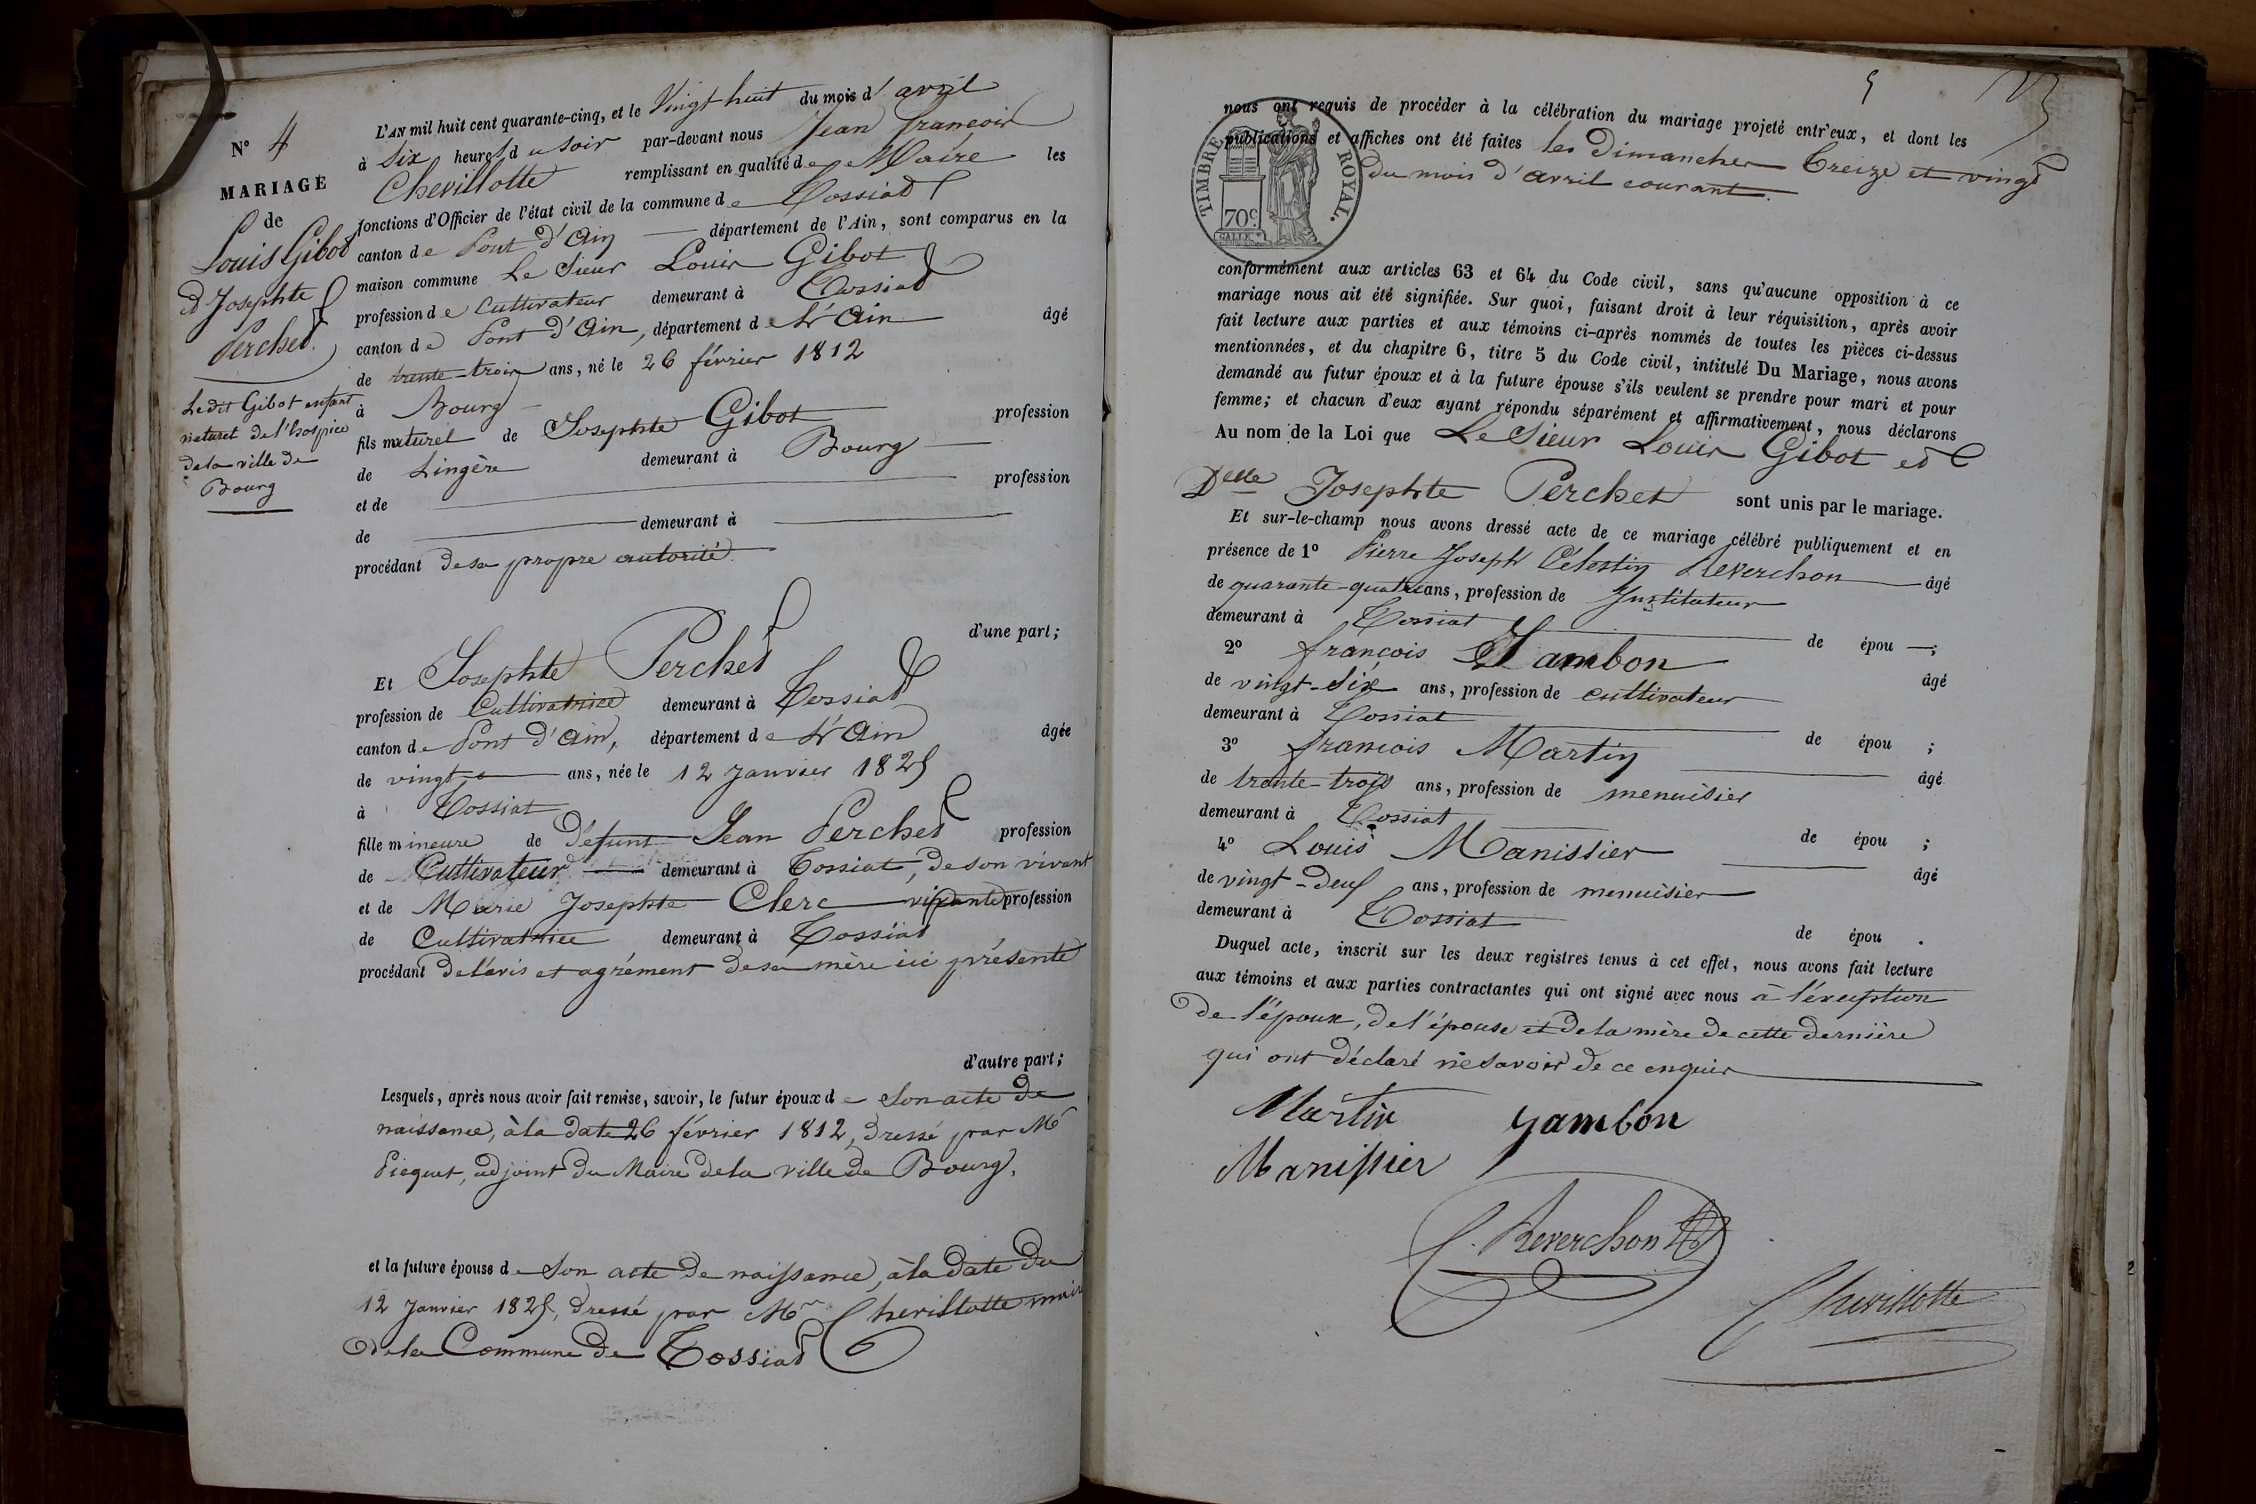 N° 4
MARIAGE
de
Louis Gibot
et Josephte
Perchet.
Ledit Gibot enfant
naturel de l'hospice
de la ville de
Bourg
L'AN mil huit cent quarante-cinq, et le Vingt huit du mois d'avril
à Six heures du soir par-devant nous Jean françois
Chevillotte remplissant en qualité de Maire les
fonctions d'Officier de l'état civil de la commune de Tossiat
canton de Pont d'Ain département de l'Ain, sont comparus en la
maison commune Le Sieur Louis Gibot
profession de Cultivateur demeurant à Tossiat
canton de Pont d'Ain, département de L'Ain âgé
de trente-trois ans, né le 26 février 1812
à Bourg
fils naturel de Josephte Gibot profession
de Lingère demeurant à Bourg
et de profession
de demeurant à
procédant de sa propre autorité.
d'une part;
Et Josephte Perchet
profession de Cultivatrice demeurant à Tossiat
canton de Pont d'Ain, département de L'Ain âgée
de vingt ans, née le 12 Janvier 1825
à Tossiat
fille mineure de Défunt Jean Perchet profession
de Cultivateur demeurant à Tossiat, de son vivant
et de Marie Josephte Clerc vivante profession
de Cultivatrice demeurant à Tossiat
procédant de l'avis et agrément de sa mère ici présente
d'autre part;
Lesquels, après nous avoir fait remise, savoir, le futur époux de Son acte de
naissance, à la date 26 février 1812, dressé par Mr
Picquet, adjoint du Maire de la ville de Bourg.
et la future épouse de Son acte de naissance, à la date du
12 Janvier 1825, dressé par Mr Chevillotte maire
de la Commune de Tossiat
5
nous ont requis de procéder à la célébration du mariage projeté entr'eux, et dont les
publications et affiches ont été faites les Dimanches Treize et vingt
du mois d'avril courant.
TIMBRE ROYAL.
70c
conformément aux articles 63 et 64 du Code civil, sans qu'aucune opposition à ce
mariage nous ait été signifiée. Sur quoi, faisant droit à leur réquisition, après avoir
fait lecture aux parties et aux témoins ci-après nommés de toutes les pièces ci-dessus
mentionnées, et du chapitre 6, titre 5 du Code civil, intitulé Du Mariage, nous avons
demandé au futur époux et à la future épouse s'ils veulent se prendre pour mari et pour
femme; et chacun d'eux ayant répondu séparément et affirmativement, nous déclarons
Au nom de la Loi que Le Sieur Louis Gibot et
Delle Josephte Perchet sont unis par le mariage.
Et sur-le-champ nous avons dressé acte de ce mariage célébré publiquement et en
présence de 1° Pierre Joseph Célestin Reverchon âgé
de quarante-quatre ans, profession de Instituteur
demeurant à Tossiat de épou ;
2° françois Jambon âgé
de vingt-Six ans, profession de cultivateur
demeurant à Tossiat de épou ;
3° françois Martin âgé
de trente-trois ans, profession de menuisier
demeurant à Tossiat de épou ;
4° Louis Manissier âgé
de vingt-deux ans, profession de menuisier
demeurant à Tossiat de épou .
Duquel acte, inscrit sur les deux registres tenus à cet effet, nous avons fait lecture
aux témoins et aux parties contractantes qui ont signé avec nous à l'exception
de l'époux, de l'épouse et de la mère de cette dernière
qui ont déclaré ne savoir de ce enquis
Martin Jambon
Manissier
C. Reverchon
Chevillotte